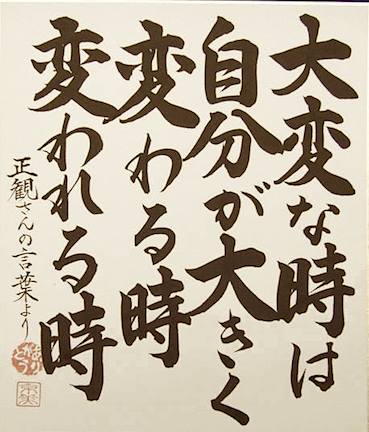 大変な時は
自分が大きく
変わる時
変われる時
正観さんの言葉より
ありがとう